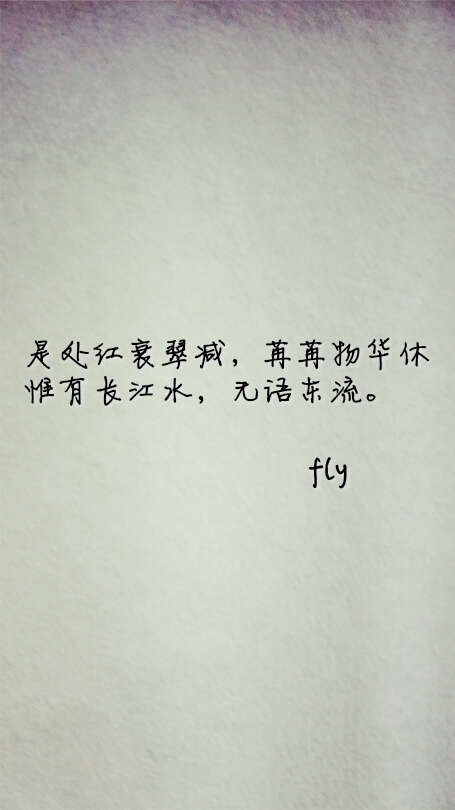 是处红衰翠减，苒苒物华休
惟有长江水，无语东流。
fly